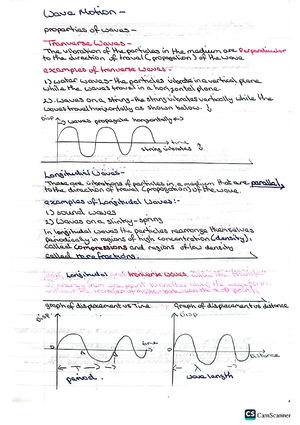 Wave Motion -
properties of waves -
Tranverse Waves -
The vibration of the particles in the medium are Perpendicular
to the direction of travel (propagation) of the wave
examples of tranverse waves :-
1) water waves - the particles vibrate in a vertical plane
while the waves travel in a horizontal plane.
2) waves on a string - the string vibrates vertically while the
waves travel horizontally as shown below.
Disp
waves propagate horizontally
time
string vibrates
Longitudinal Waves -
These are vibrations of particles in a medium that are parallel
to the direction of travel (propagation) of the wave.
examples of Longitudinal Waves :-
1) sound waves
2) Waves on a slinky - spring
In longitudinal waves the particles rearrange themselves
periodically in regions of high concentration (density),
called compressions and regions of low density
called rarefractions.
Longitudinal and tranverse waves
graph of displacement vs Time
Graph of displacement vs distance
Disp.
Disp
0
time
0
distance
T
λ
period.
wave length
CS CamScanner